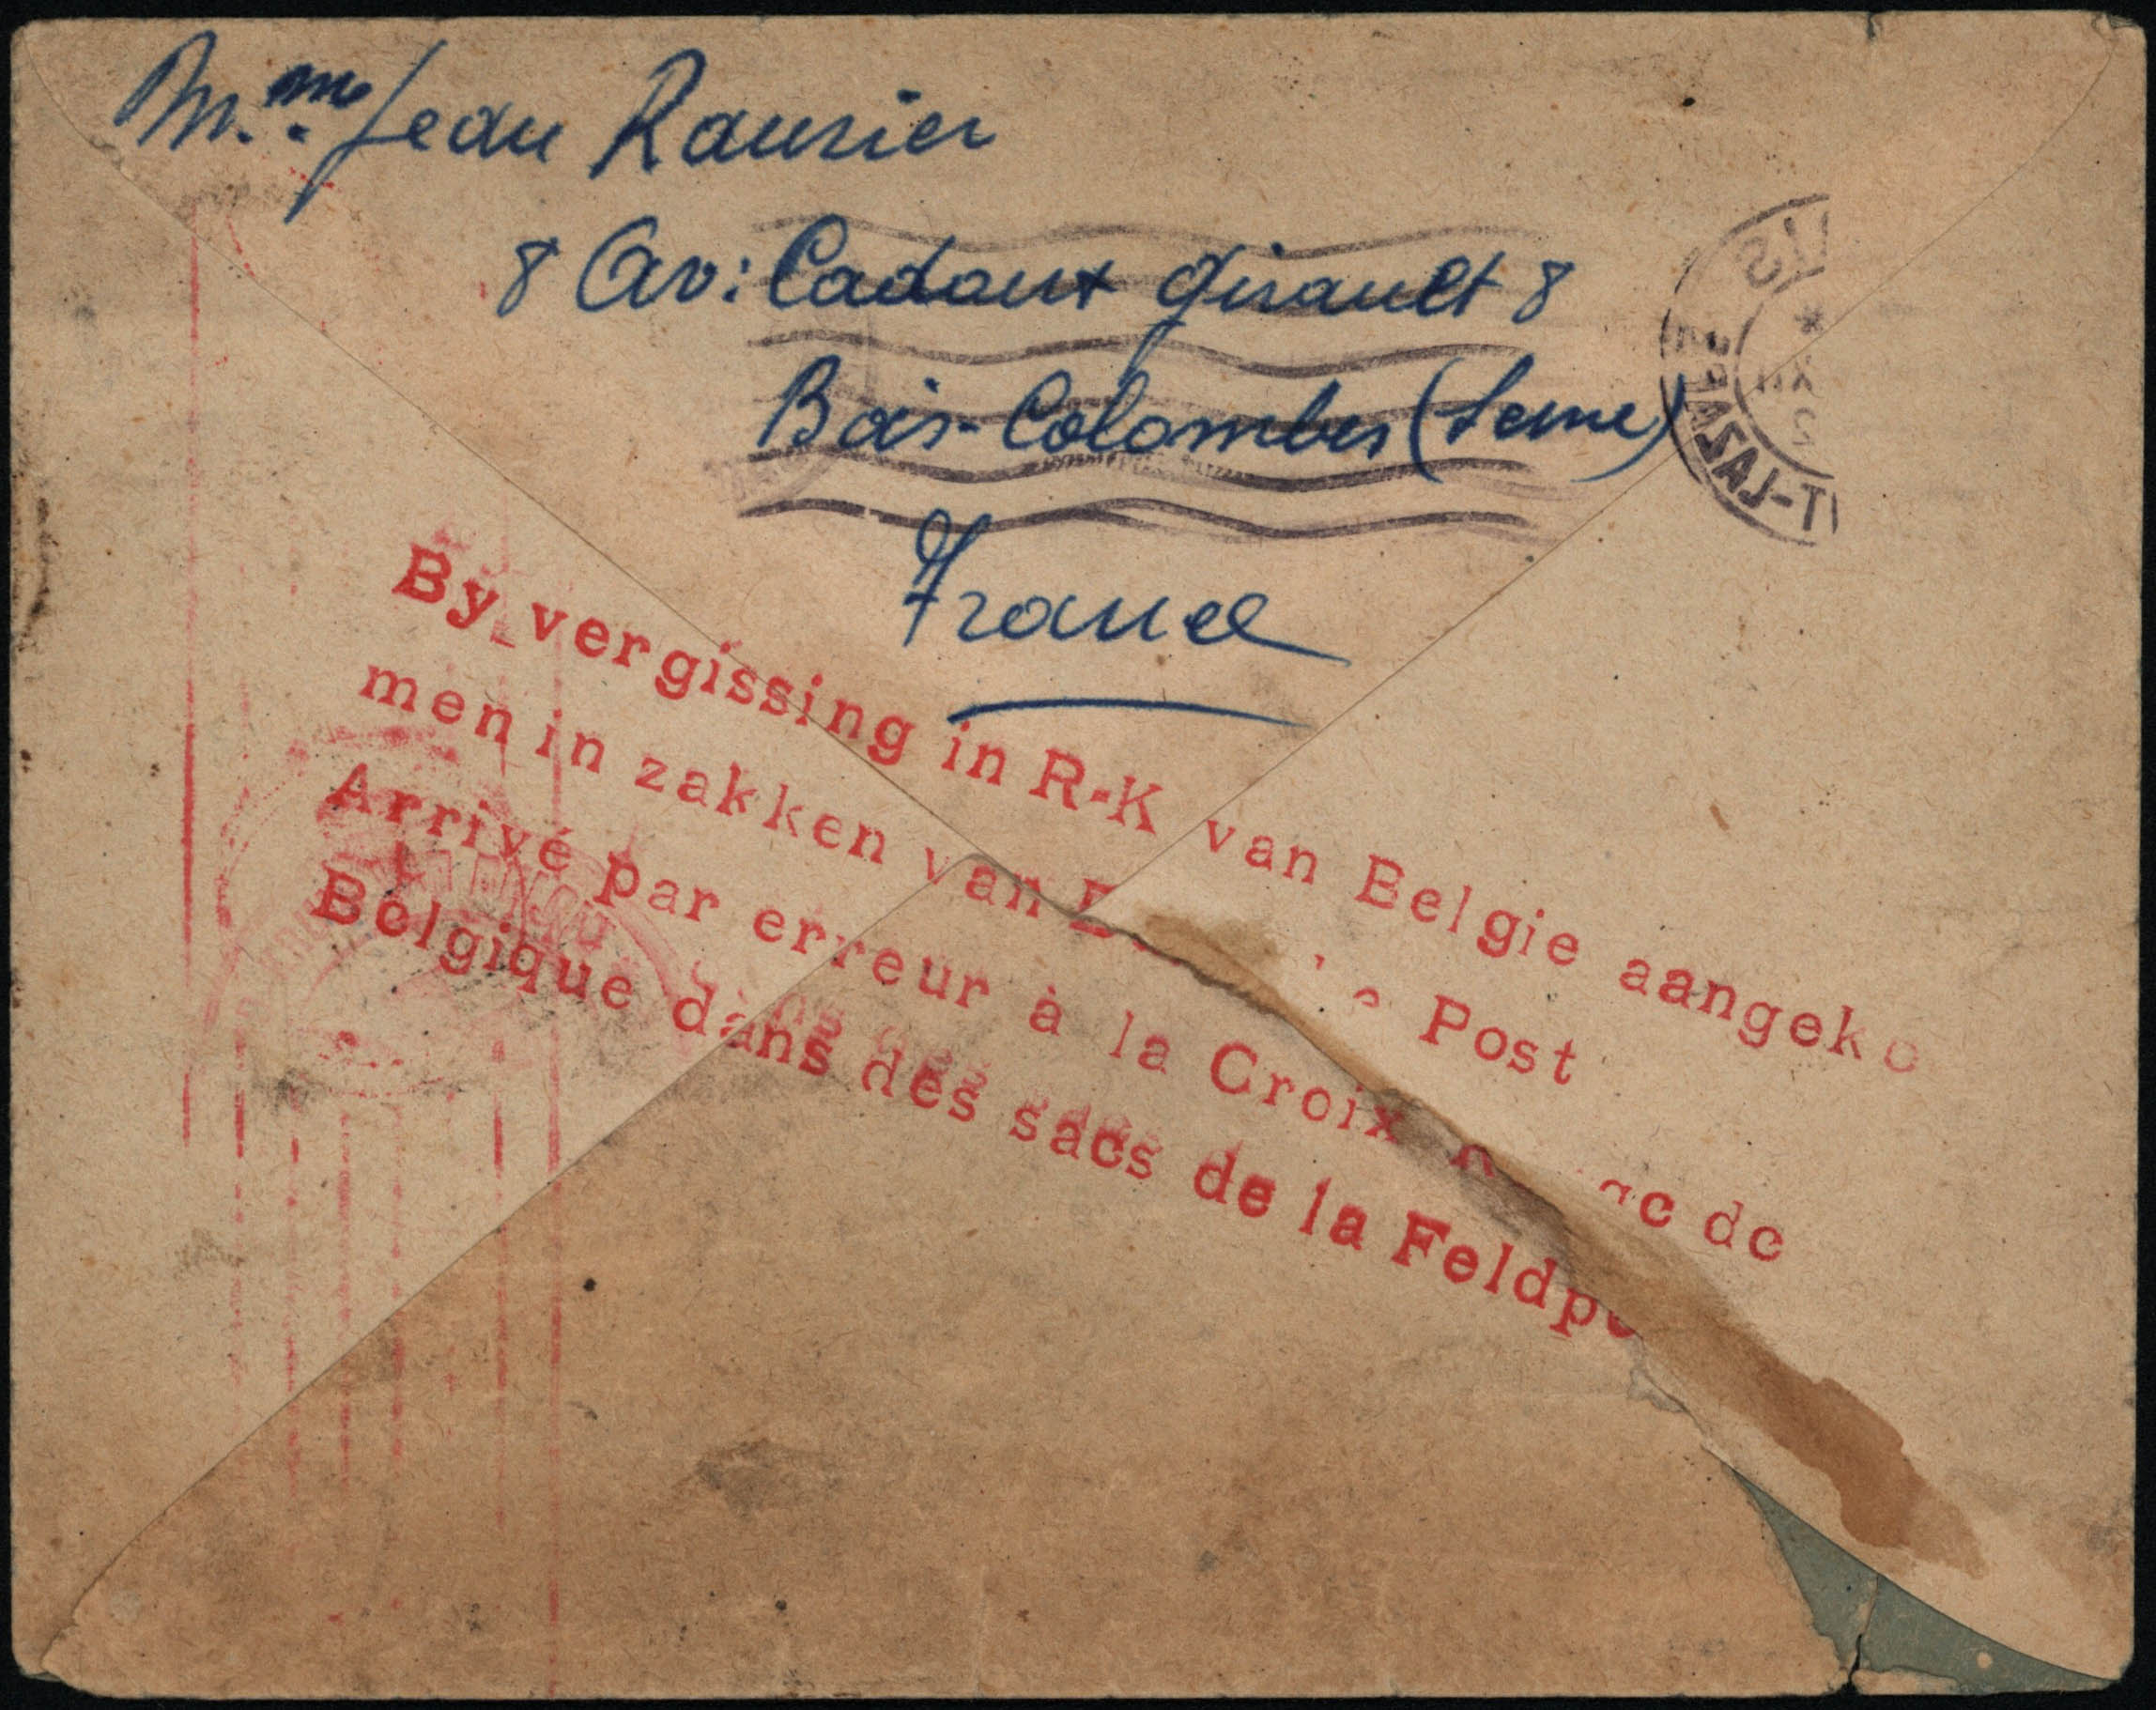 Mme Jean Rausier
8 Av: Cadoux Girault 8
Bois-Colombes (Seine)
France
By vergissing in R-K van Belgie aangeko
men in zakken van Post
Arrivé par erreur à la Croix de
Belgique dans des sacs de la Feldpo